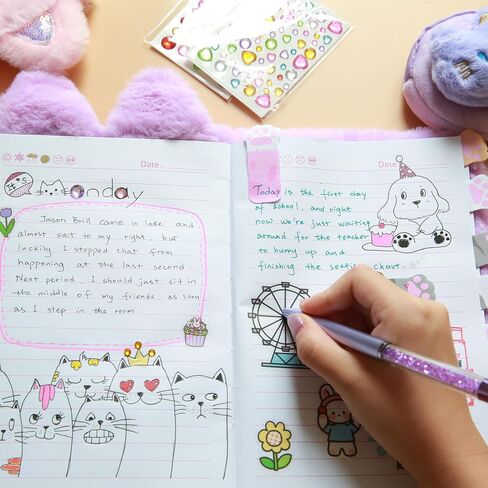 Date......
It's Monday
Jason Brill came in late and
almost sat to my right, but
luckily I stopped that from
happening at the last second
Next period, I should just sit in
the middle of my friends as soon
as I step in the room.
Date......
Today is the first day
of school, and right
now we're just waiting
around for the teacher
to hurry up and
finishing the seating chart.